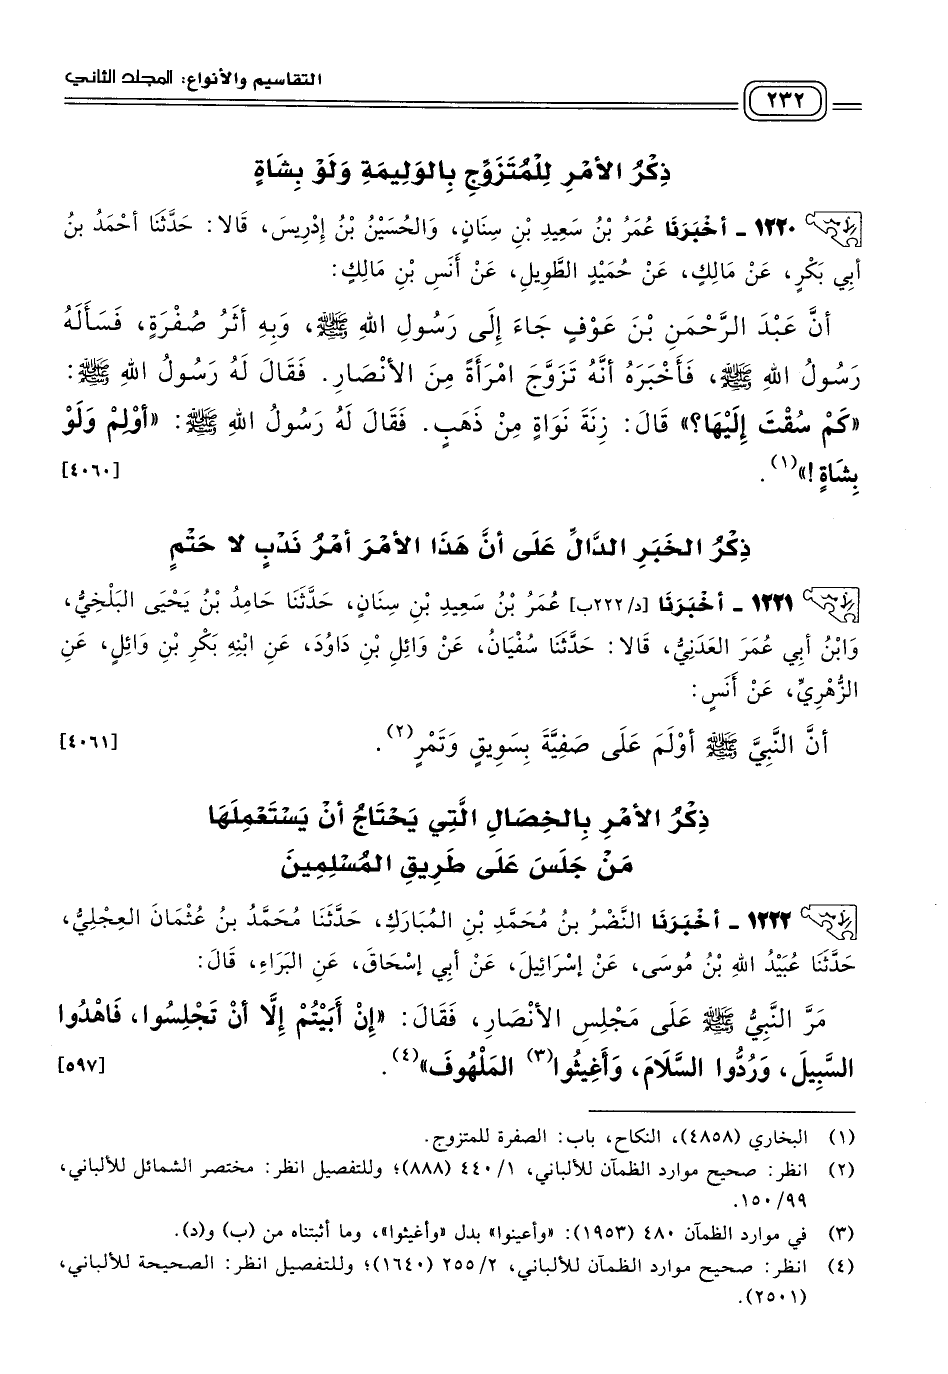 التقاسيم والأنواع: المجلد الثاني
٢٣٢
ذِكْرُ الأَمْرِ لِلْمُتَزَوِّجِ بِالوَلِيمَةِ وَلَوْ بِشَاةٍ
١٢٢٠ ـ أَخْبَرَنَا عُمَرُ بْنُ سَعِيدِ بْنِ سِنَانٍ، وَالحُسَيْنُ بْنُ إِدْرِيسَ، قَالا: حَدَّثَنَا أَحْمَدُ بنُ
أَبِي بَكْرٍ، عَنْ مَالِكٍ، عَنْ حُمَيْدٍ الطَّوِيلِ، عَنْ أَنَسِ بْنِ مَالِكٍ:
أَنَّ عَبْدَ الرَّحْمَنِ بْنَ عَوْفٍ جَاءَ إِلَى رَسُولِ اللهِ ﷺ، وَبِهِ أَثَرُ صُفْرَةٍ، فَسَأَلَهُ
رَسُولُ اللهِ ﷺ، فَأَخْبَرَهُ أَنَّهُ تَزَوَّجَ امْرَأَةً مِنَ الأَنْصَارِ. فَقَالَ لَهُ رَسُولُ اللهِ ﷺ:
«كَمْ سُقْتَ إِلَيْهَا؟» قَالَ: زِنَةَ نَوَاةٍ مِنْ ذَهَبٍ. فَقَالَ لَهُ رَسُولُ اللهِ ﷺ: «أَوْلِمْ وَلَوْ
بِشَاةٍ!»(١). [٤٠٦٠]
ذِكْرُ الخَبَرِ الدَّالِّ عَلَى أَنَّ هَذَا الأَمْرَ أَمْرُ نَدْبٍ لا حَتْمٍ
١٢٢١ ـ أَخْبَرَنَا [د/٢٢٢ب] عُمَرُ بْنُ سَعِيدِ بْنِ سِنَانٍ، حَدَّثَنَا حَامِدُ بْنُ يَحْيَى البَلْخِيُّ،
وَابْنُ أَبِي عُمَرَ العَدَنِيُّ، قَالا: حَدَّثَنَا سُفْيَانُ، عَنْ وَائِلِ بْنِ دَاوُدَ، عَنِ ابْنِهِ بَكْرِ بْنِ وَائِلٍ، عَنِ
الزُّهْرِيِّ، عَنْ أَنَسٍ:
أَنَّ النَّبِيَّ ﷺ أَوْلَمَ عَلَى صَفِيَّةَ بِسَوِيقٍ وَتَمْرٍ(٢). [٤٠٦١]
ذِكْرُ الأَمْرِ بِالخِصَالِ الَّتِي يَحْتَاجُ أَنْ يَسْتَعْمِلَهَا
مَنْ جَلَسَ عَلَى طَرِيقِ المُسْلِمِينَ
١٢٢٢ ـ أَخْبَرَنَا النَّضْرُ بنُ مُحَمَّدِ بْنِ المُبَارَكِ، حَدَّثَنَا مُحَمَّدُ بنُ عُثْمَانَ العِجْلِيُّ،
حَدَّثَنَا عُبَيْدُ اللهِ بْنُ مُوسَى، عَنْ إِسْرَائِيلَ، عَنْ أَبِي إِسْحَاقَ، عَنِ البَرَاءِ، قَالَ:
مَرَّ النَّبِيُّ ﷺ عَلَى مَجْلِسِ الأَنْصَارِ، فَقَالَ: «إِنْ أَبَيْتُمْ إِلَّا أَنْ تَجْلِسُوا، فَاهْدُوا
السَّبِيلَ، وَرُدُّوا السَّلَامَ، وَأَغِيثُوا(٣) المَلْهُوفَ»(٤). [٥٩٧]
(١) البخاري (٤٨٥٨)، النكاح، باب: الصفرة للمتزوج.
(٢) انظر: صحيح موارد الظمآن للألباني، ١/ ٤٤٠ (٨٨٨)؛ وللتفصيل انظر: مختصر الشمائل للألباني،
٩٩/ ١٥٠.
(٣) في موارد الظمآن ٤٨٠ (١٩٥٣): «وأعينوا» بدل «وأغيثوا»، وما أثبتناه من (ب) و(د).
(٤) انظر: صحيح موارد الظمآن للألباني، ٢/ ٢٥٥ (١٦٤٠)؛ وللتفصيل انظر: الصحيحة للألباني،
(٢٥٠١).